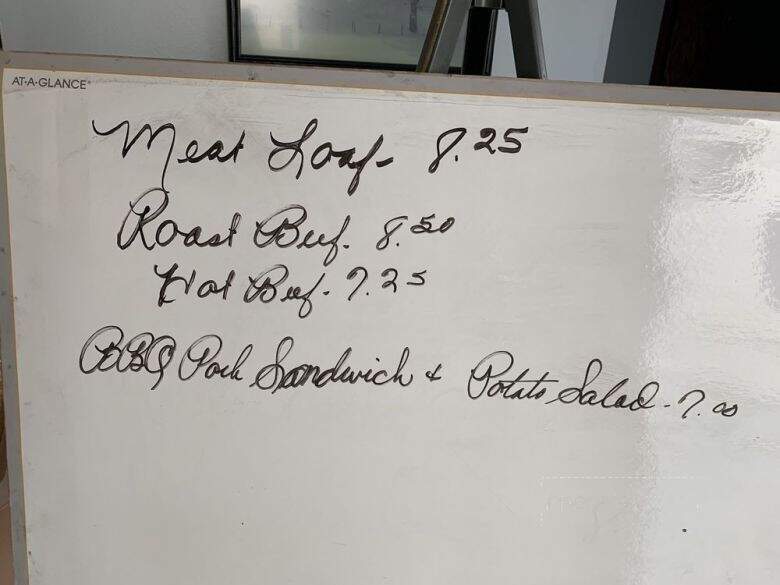 AT-A-GLANCE
Meat Loaf- 8.25
Roast Beef. 8.50
Hot Beef- 7.25
BBQ Pork Sandwich & Potato Salad-7.00